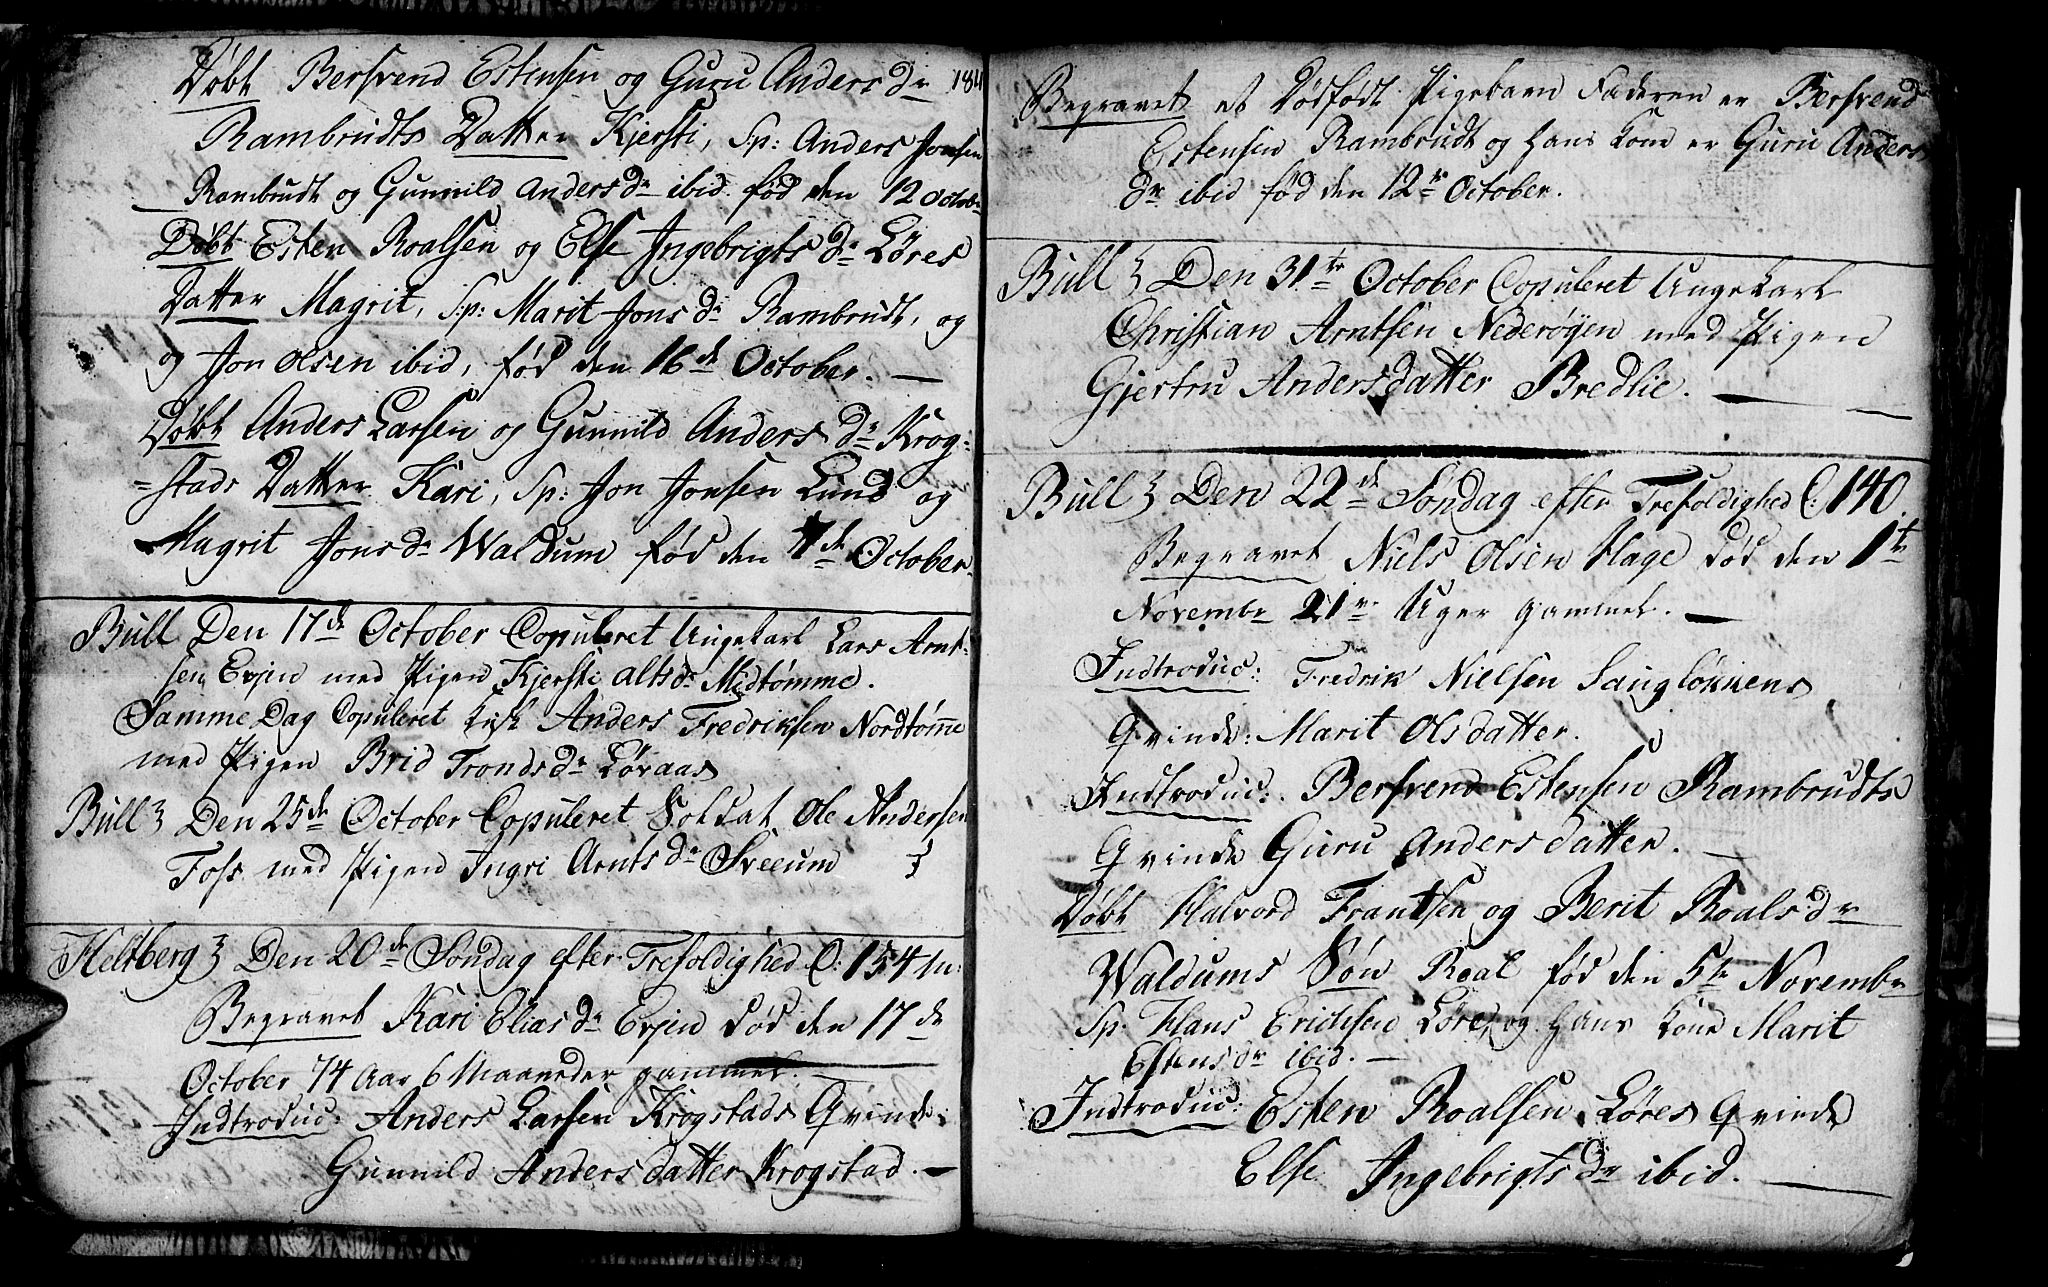 Døbt Bersvend Estensen og Guru Anders Dr 184
Rambrudts Datter Kjersti, Sp: Anders Jonsen
Rambrudt og Gunnild Anders dr ibid. fød den 12 Octobr
Døbt Esten Roalsen og Else Ingebrigts dr Løres
Datter Magrit, Sp: Marit Jons dr Rambrudt, og
og Jon Olsen ibid, fød den 16de October. —
Døbt Anders Larsen og Gunnild Anders dr Krog-
=stads Datter Kari, Sp: Jon Jonsen Lund og
Magrit Jons dr Waldum fød den 7de October.
Bull Den 17de October Copuleret Ungekarl Lars Arnt-
sen Evjen med Pigen Kjersti Alts dr Midtømme.
Samme Dag Copuleret Anders Fredriksen Nordtømme
med Pigen Brid Tronds dr Løvaas
Bull Den 25de October Copuleret Soldat Ole Andersen
Foss med Pigen Ingri Arnts dr Sveeum
Heltberg Den 20de Søndag efter Trefoldighed C: 154 M:
Begravet Kari Elias dr Evjen død den 17de
October 74 Aar 6 Maaneder gammel. —
Indtroduc: Anders Larsen Krogstads Qvinde:
Gunnild Andersdatter Krogstad. —
Begravet et Dødfødt Pigebarn Faderen er Bersvend
Estensen Rambrudt og Hans Kone er Guru Anders
dr ibid fød den 12te October.
Bull Den 31te October Copuleret Ungekarl
Christian Arntsen Nederøyen med Pigen
Gjertru Andersdatter Bredlie. —
Bull Den 22de Søndag efter Trefoldighed C: 140.
Begravet Niels Olsen Hage død den 1te
Novembr 21 Uger gammel. —
Indtroduc: Fredrik Nielsen Sangløkkens
Qvinde: Marit Olsdatter.
Indtroduc: Bersvend Estensen Rambrudts
Qvinde Guru Andersdatter. —
Døbt Halvord Frantsen og Berit Roals dr
Waldums Søn Roal fød den 5te Novembr
Sp. Hans Erichsen Løre, og Hans Kone Marit
Estens dr ibid. —
Indtroduc: Esten Roalsen Løres Qvinde
Else Ingebrigts dr ibid. —